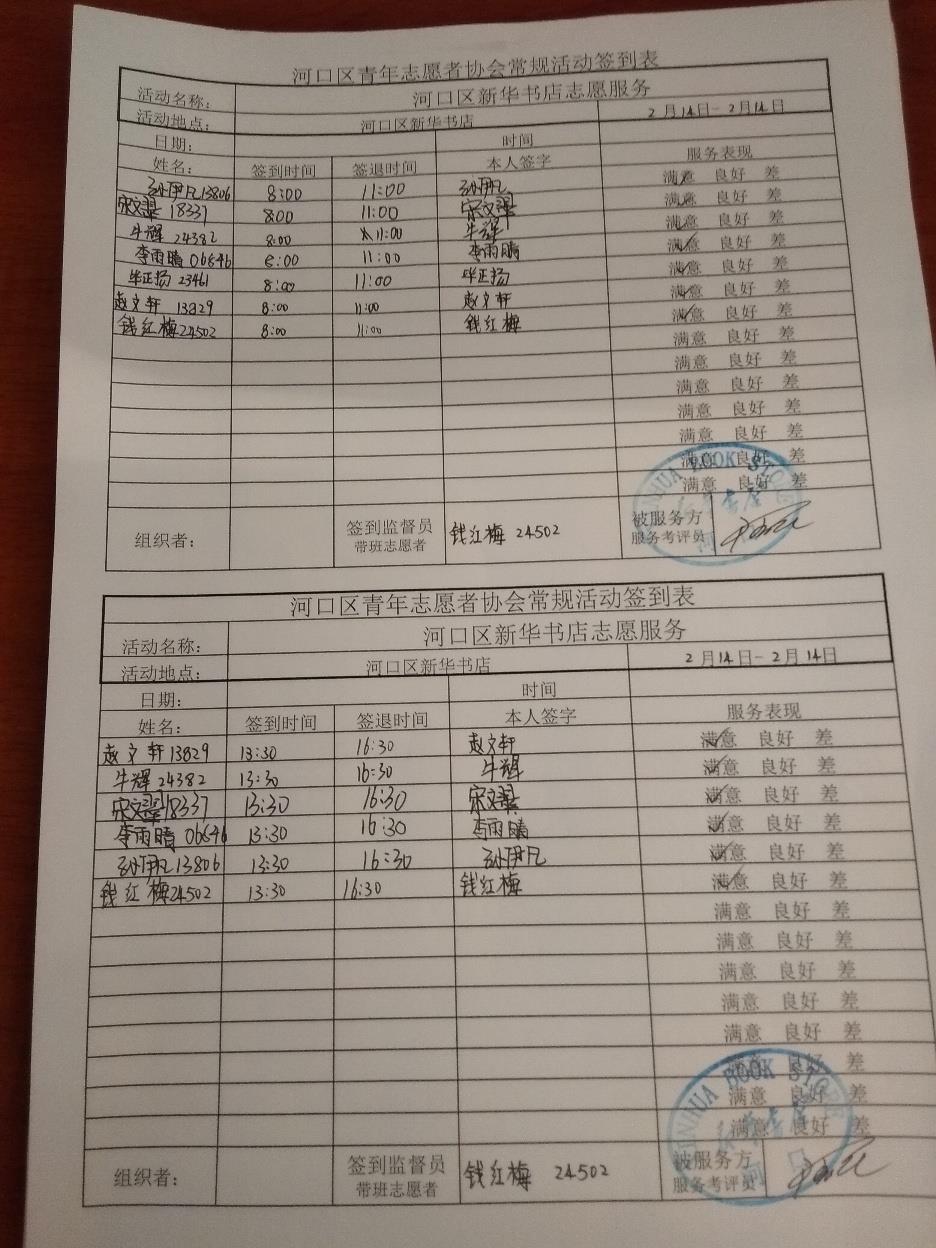 河口区青年志愿者协会常规活动签到表
活动名称： 河口区新华书店志愿服务
活动地点： 河口区新华书店 2月14日-2月14日
日期： 时间
姓名： 签到时间 签退时间 本人签字 服务表现
孙伊凡13806 8:00 11:00 孙伊凡 满意 良好 差
宋文翠 18337 8:00 11:00 宋文翠 满意 良好 差
牛辉 24382 8:00 11:00 牛辉 满意 良好 差
李雨晴 06646 8:00 11:00 李雨晴 满意 良好 差
毕正扬 23461 8:00 11:00 毕正扬 满意 良好 差
赵文轩 13829 8:00 11:00 赵文轩 满意 良好 差
钱红梅24502 8:00 11:00 钱红梅 满意 良好 差
满意 良好 差
满意 良好 差
满意 良好 差
满意 良好 差
满意 良好 差
满意 良好 差
满意 良好 差
BOOK STORE
组织者： 签到监督员 钱红梅 24502 被服务方
带班志愿者 服务考评员
河口区青年志愿者协会常规活动签到表
活动名称： 河口区新华书店志愿服务
活动地点： 河口区新华书店 2月14日-2月14日
日期： 时间
姓名： 签到时间 签退时间 本人签字 服务表现
赵文轩13829 13:30 16:30 赵文轩 满意 良好 差
牛辉24382 13:30 16:30 牛辉 满意 良好 差
宋文翠18337 13:30 16:30 宋文翠 满意 良好 差
李雨晴 06646 13:30 16:30 李雨晴 满意 良好 差
孙伊凡13806 13:30 16:30 孙伊凡 满意 良好 差
钱红梅24502 13:30 16:30 钱红梅 满意 良好 差
满意 良好 差
满意 良好 差
满意 良好 差
满意 良好 差
满意 良好 差
满意 良好 差
满意 良好 差
满意 良好 差
XINHUA BOOK STORE
组织者： 签到监督员 钱红梅 24502 被服务方
带班志愿者 服务考评员